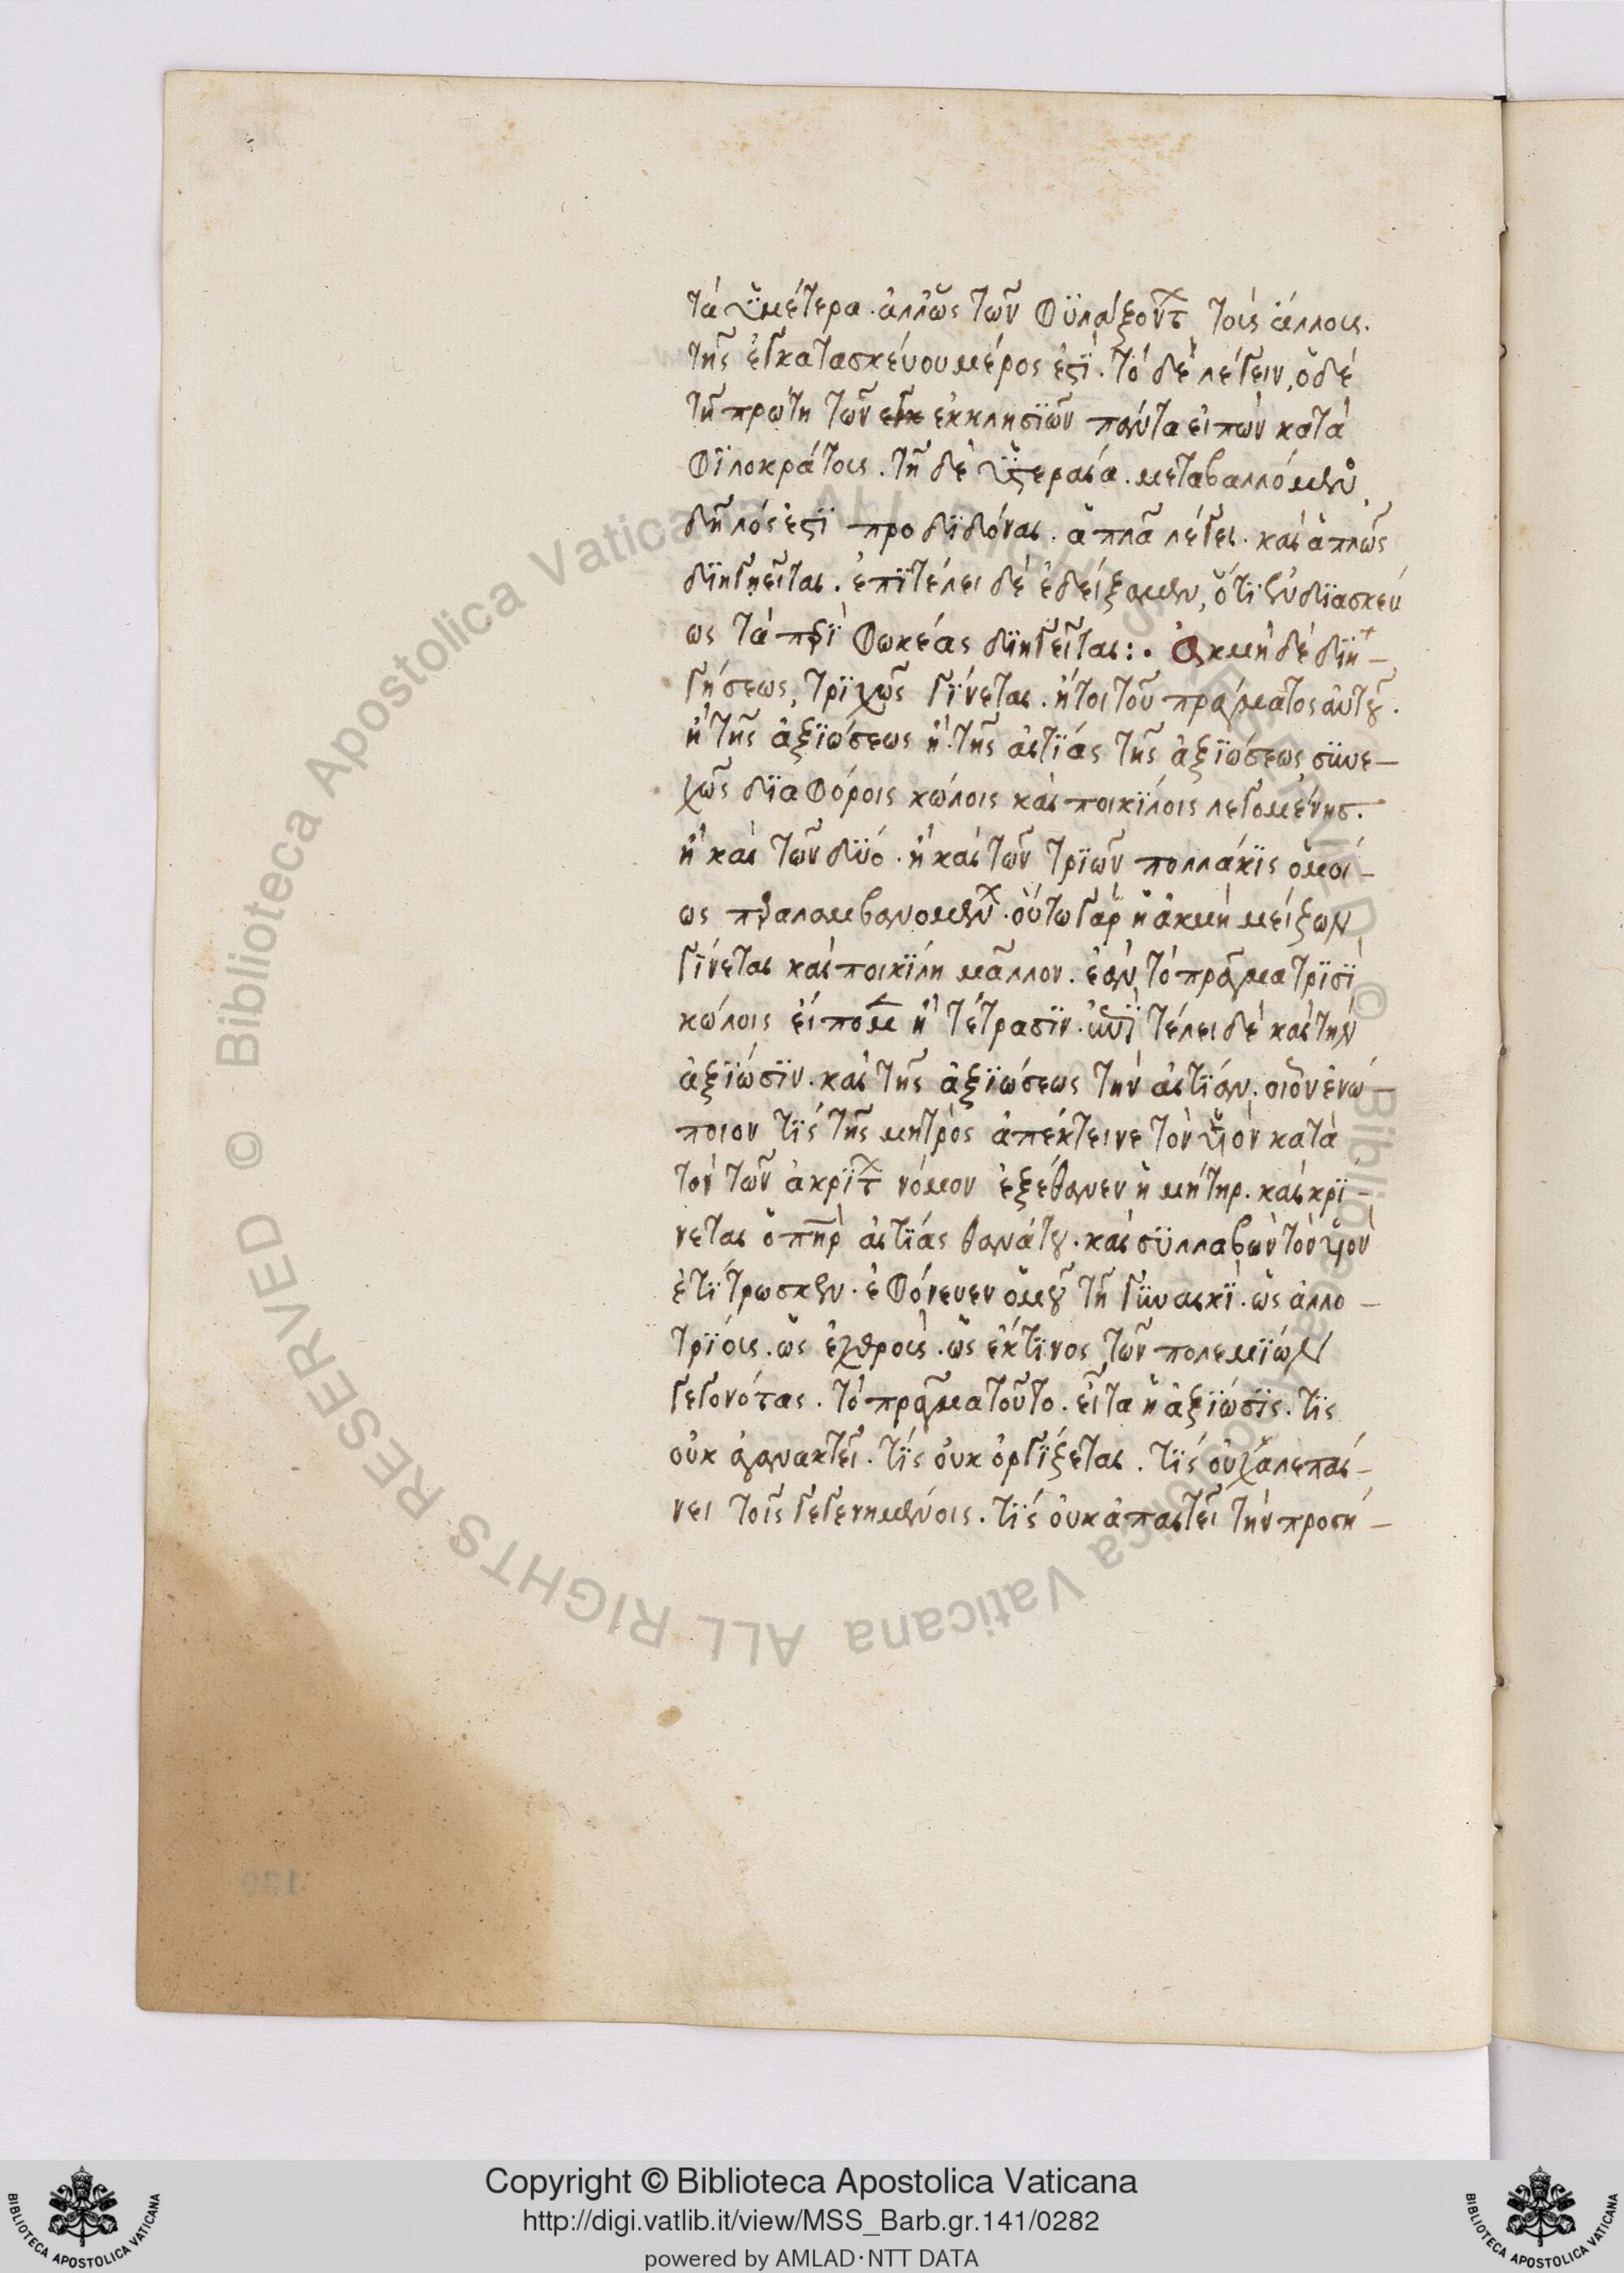 τὰ ὑμέτερα. ἀλλ' ὡς τῶν φϋλαξόντ τοῖς ἄλλοις.
τῆς ἐγκατασκέυου μέρος ἐστϊ. τὸ δὲ λέγειν, ὁ δὲ
τῆ πρώτη τῶν ἐκκλησϊῶν πάντα ειπὼν κατὰ
Φϊλοκράτους. τῆ δὲ ὑστεραία. μεταβαλλόμενος
δῆλός ἐστϊ προδϊδόναι. ἁπλᾶ λέγει. καὶ ἁπλῶς
δϊηγῆειται. ἐπϊ τέλει δὲ ἐδείξαμεν, ὅτϊ ἐνδϊασκεύ
ως τὰ περϊ Φωκέας δϊηγεῖται:. Ἀκμὴ δὲ δϊη-
γήσεως, τρϊχῶς γϊνεται. ἤτοι τοῦ πράγματος αὐτοῦ.
ἢ τῆς ἀξϊώσεως ἢ τῆς αἰτϊάς τῆς ἀξϊώσεως σϋνε-
χῶς δϊαφόροις κώλοις καὶ ποικϊλοις λεγομένης.
ἢ καὶ τῶν δϋό. ἢ καὶ τῶν τρϊῶν πολλάκϊς ὁμοί-
ως παραλαμβανομένων. οὕτω γὰρ ἡ ἀκμὴ μείζων
γϊνεται καὶ ποικϊλη μᾶλλον. ἐὰν τὸ πρᾶγμα τρϊσϊ
κώλοις εἴπομεν ἢ τέτρασϊν. τέλει δὲ καὶ τὴν
ἀξϊώσϊν. καὶ τῆς ἀξϊώσεως τὴν αἰτϊάν. οιὸν ἐνώ-
πιον τϊς τῆς μητρὸς ἀπέκτεινε τὸν ὑϊὸν κατὰ
τὸν τῶν ἀκρϊτ νόμον ἐξέθανεν ἡ μήτηρ. καὶ κρϊ-
νεται ὁ πηρ αἰτϊάς θανάτου. καὶ σϋλλαβὼν τὸν ὑϊὸν
ἐτϊτρωσκεν. ἐφόνευεν ὁμοῦ τῆ γϋναικϊ. ὡς ἀλλο-
τρϊόις. ὡς ἐχθροὶς. ὡς ἐκ τϊνος τῶν πολεμϊών
γεγονότας. τὸ πρᾶγμα τοῦτο. εἶτα ἡ ἀξϊώσϊς. τϊς
οὐκ ἀγανακτεῖ. τϊς ὀυκ ὀργϊζεται. τϊς ὀυ χαλεπαί-
νει τοῖς γεγενημένοις. τϊς ὀυκ ἀπαιτεῖ τὴν προσή-
Copyright © Biblioteca Apostolica Vaticana
http://digi.vatlib.it/view/MSS_Barb.gr.141/0282
powered by AMLAD·NTT DATA